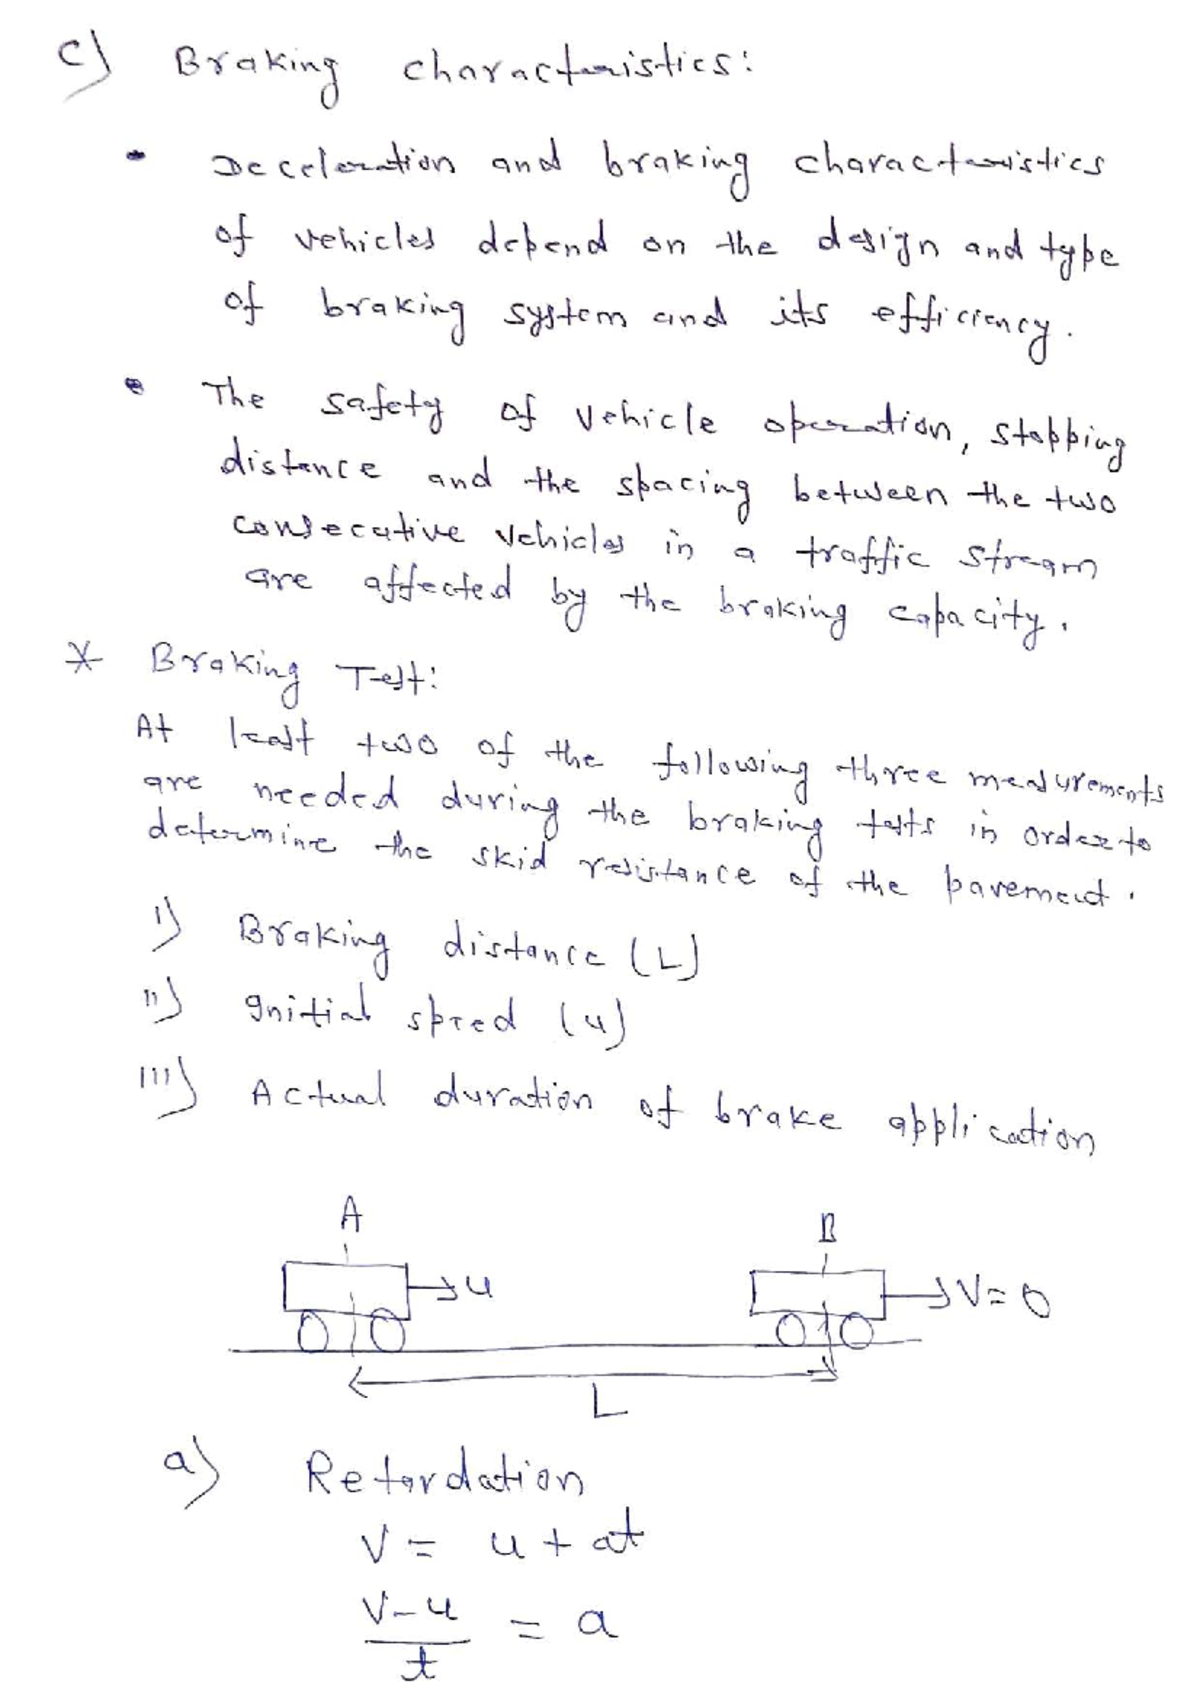 c) Braking characteristics:
• Deceleration and braking characteristics
of vehicles depend on the design and type
of braking system and its efficiency.
• The safety of vehicle operation, stopping
distance and the spacing between the two
consecutive vehicles in a traffic stream
are affected by the braking capacity.
* Braking Test:
At least two of the following three measurements
are needed during the braking tests in order to
determine the skid resistance of the pavement.
i) Braking distance (L)
ii) Initial speed (u)
iii) Actual duration of brake application
A B
u V=0
L
a) Retardation
V = u + at
V-u/t = a